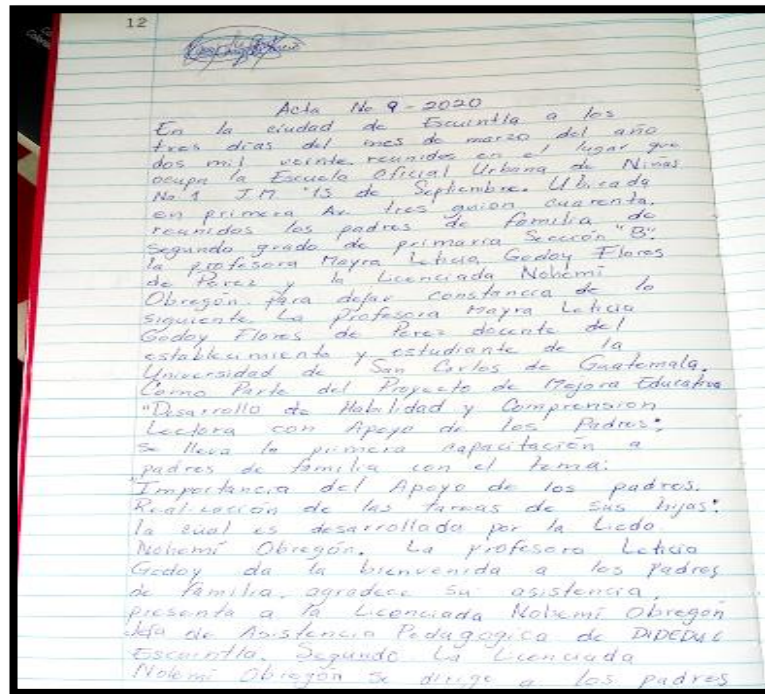 12
Acta No 9-2020
En la ciudad de Escuintla a los
tres días del mes de marzo del año
dos mil veinte. reunidos en el lugar que
ocupa la Escuela Oficial Urbana de Niñas
No. 1 J.M "15 de Septiembre. Ubicada
en primera Av. tres guion cuarenta.
reunidos los padres de familia de
segundo grado de primaria Sección "B".
la profesora Mayra Leticia Godoy Flores
de Pérez y la Licenciada Nohemí
Obregón. para dejar constancia de lo
siguiente La profesora Mayra Leticia
Godoy Flores de Perez docente del
establecimiento y estudiante de la
Universidad de San Carlos de Guatemala.
Como Parte del Proyecto de Mejora Educativa
"Desarrollo de Habilidad y Comprension
Lectora con Apoyo de los Padres"
se lleva la primera capacitación a
padres de familia con el tema:
"Importancia del Apoyo de los padres.
Realización de las tareas de sus hijas"
la cúal es desarrollada por la Licda.
Nohemí Obregón. La profesora Leticia
Godoy da la bienvenida a los Padres
de familia. agradece su asistencia,
presenta a la Licenciada Nohemí Obregón
Jefa de Asistencia Pedagogica de DIDEDUC
Escuintla. Segundo La Licenciada
Nohemí Obregón se dirige a los padres